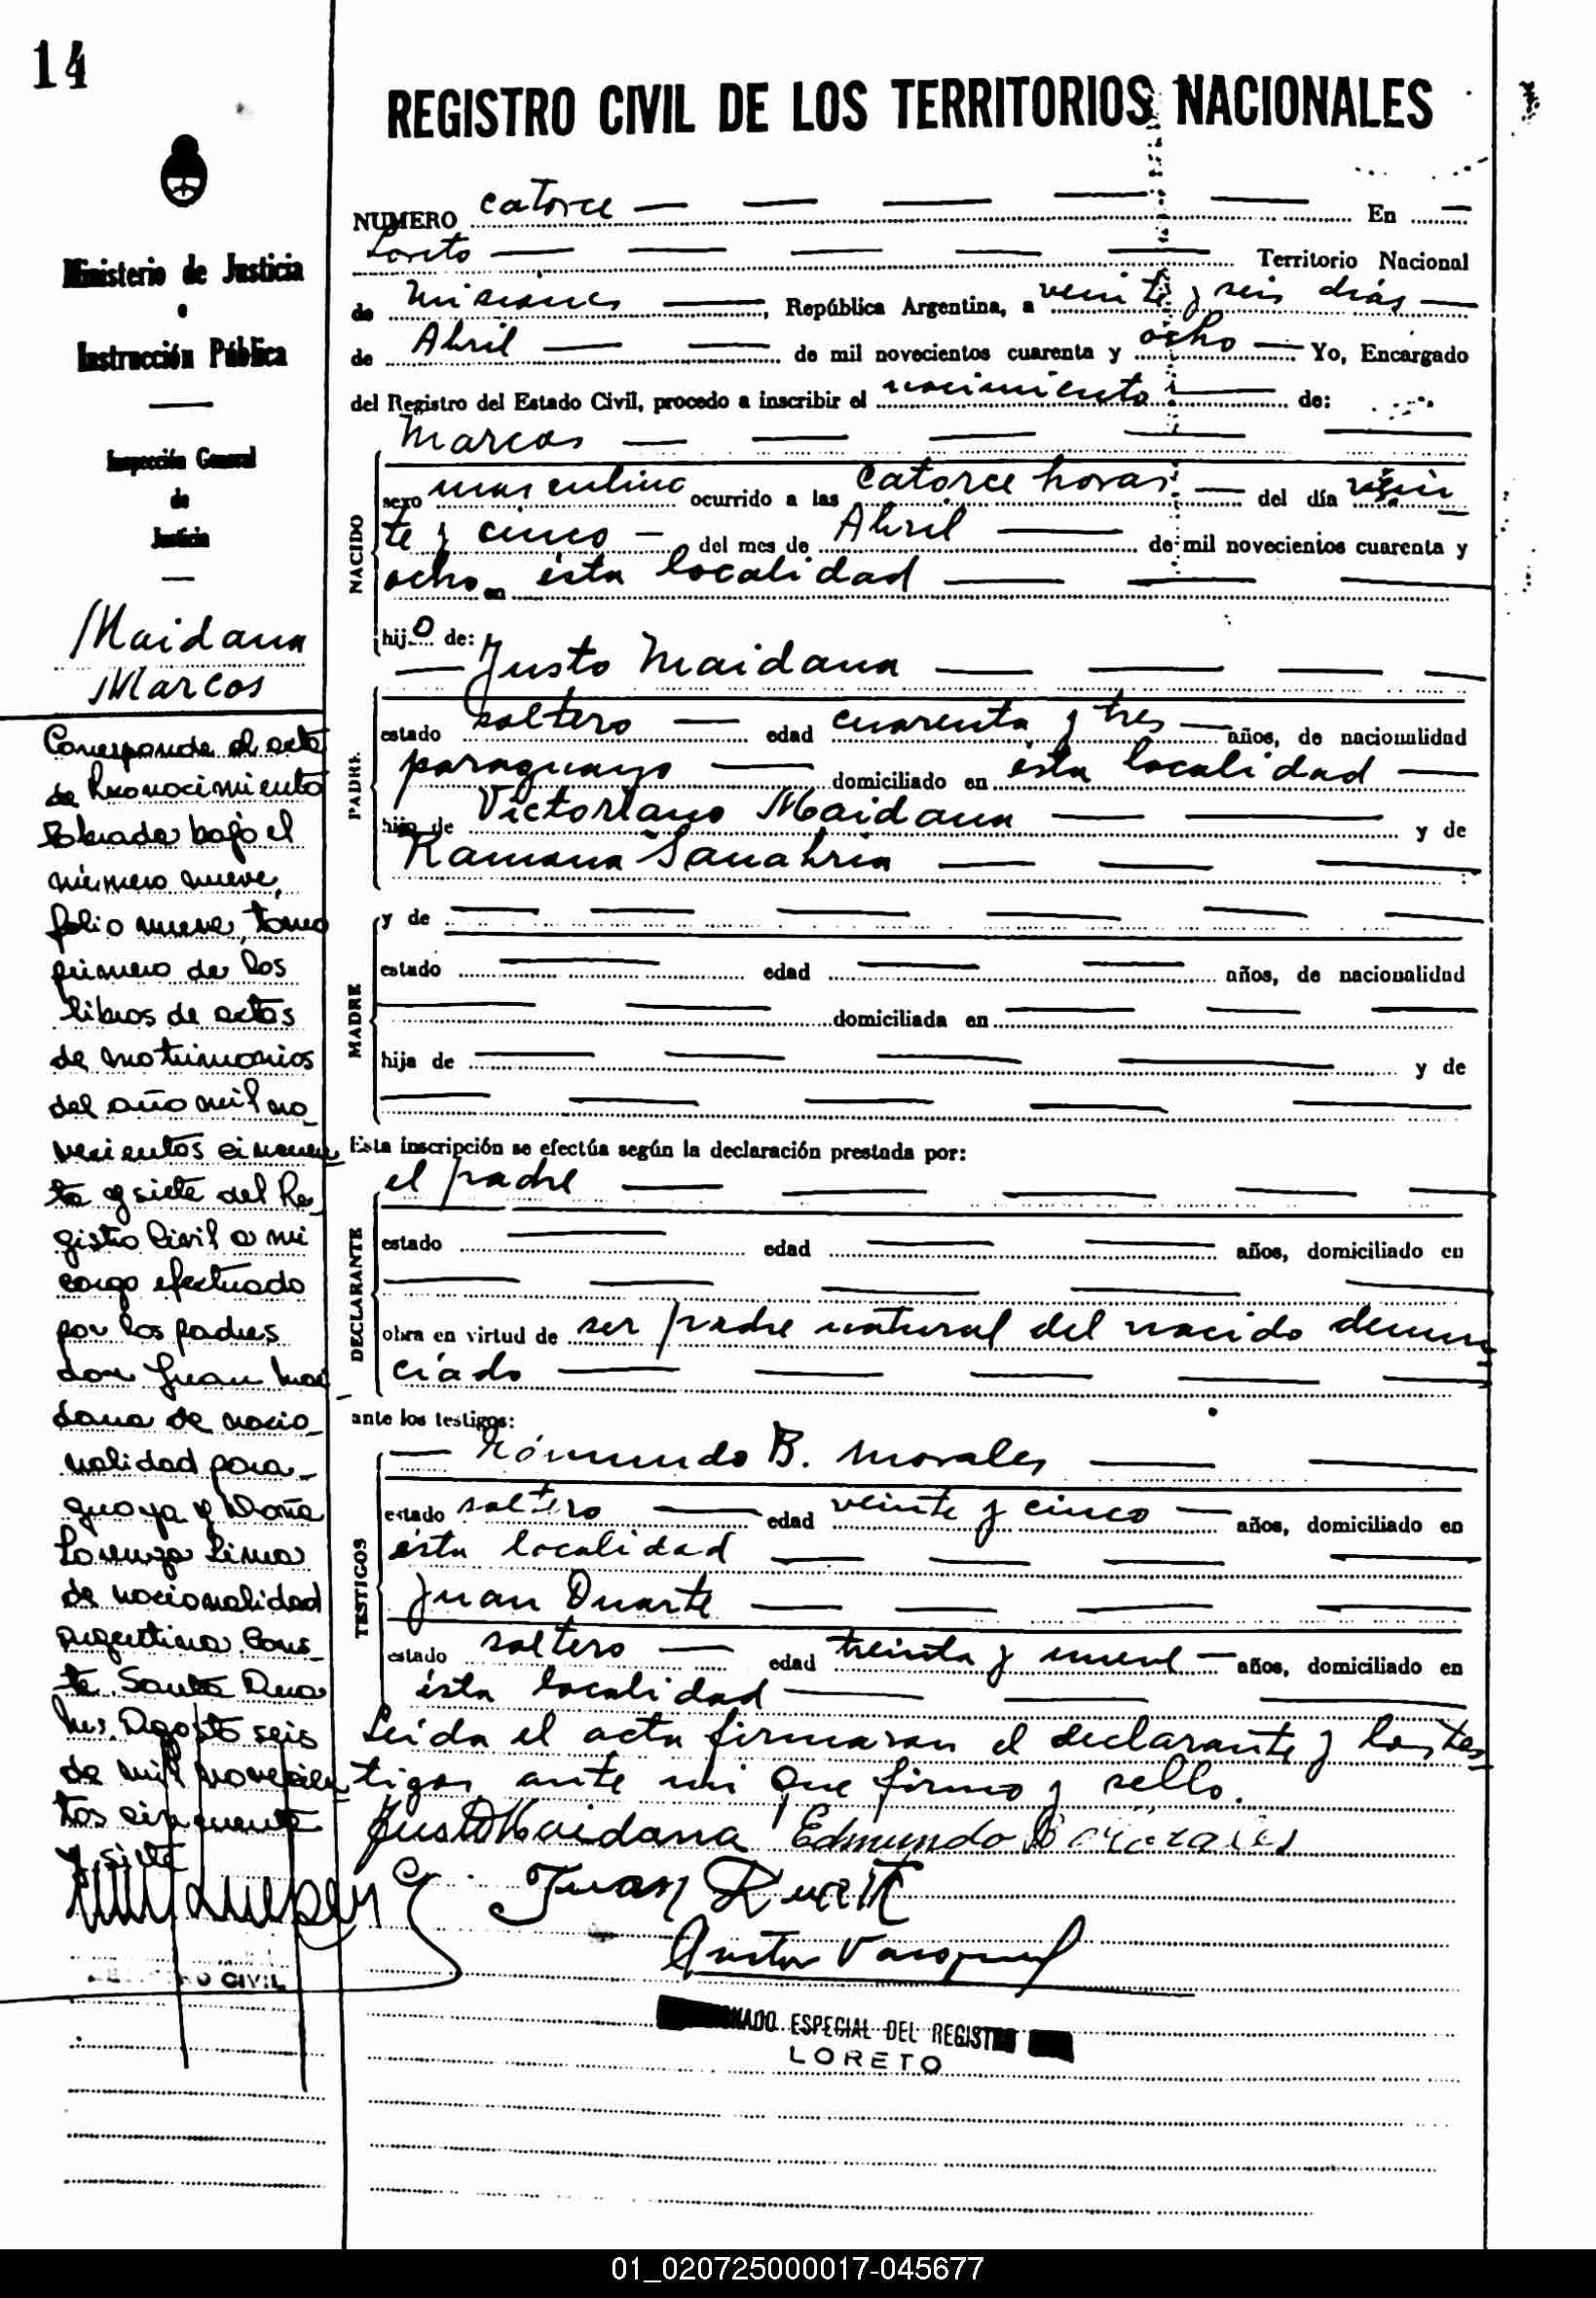 14
REGISTRO CIVIL DE LOS TERRITORIOS NACIONALES
Ministerio de Justicia
e
Instrucción Pública
Inspección General
de
Justicia
Maidana
Marcos
Corresponde al acta
de Reconocimiento
labrada bajo el
número nueve,
folio nueve, tomo
primero de los
libros de actas
de matrimonios
del año mil no_
vecientos cincuen
ta y siete del Re_
gistro Civil a mi
cargo efectuado
por los padres
don Juan Mai
dana de nacio_
nalidad para_
guaya y Doña
Lorenza Lima
de nacionalidad
argentina. Cons_
te. Santa Ana
Ms. Agosto seis
de mil novecien
tos cincuenta
y siete
CIVIL
NUMERO catorce En
Loreto Territorio Nacional
de Misiones, República Argentina, a veinte y seis días
de Abril de mil novecientos cuarenta y ocho Yo, Encargado
del Registro del Estado Civil, procedo a inscribir el nacimiento de:
Marcos
NACIDO
sexo masculino ocurrido a las catorce horas del día vein
te y cinco del mes de Abril de mil novecientos cuarenta y
ocho en ésta localidad
hijo de:
Justo Maidana
PADRE
estado soltero edad cuarenta y tres años, de nacionalidad
paraguayo domiciliado en ésta localidad
hijo de Victoriano Maidana y de
Ramona Sanabria
MADRE
y de
estado edad años, de nacionalidad
domiciliada en
hija de y de
Esta inscripción se efectúa según la declaración prestada por:
el padre
DECLARANTE
estado edad años, domiciliado en
obra en virtud de ser padre natural del nacido denun
ciado
ante los testigos:
Rómundo B. Morales
TESTIGOS
estado soltero edad veinte y cinco años, domiciliado en
ésta localidad
Juan Duarte
estado soltero edad treinta y nueve años, domiciliado en
ésta localidad
Leída el acta firmaran el declarante y los tes
tigos ante mi que firmo y sello.
Justo Maidana Edmundo B Morales
Juan Duarte
ESPECIAL DEL REGISTRO
LORETO
01_020725000017-045677